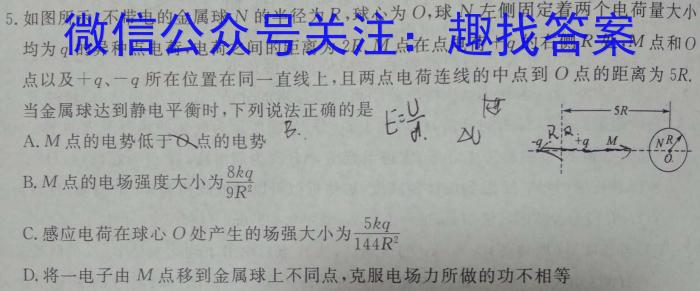 5.如图所示,不带电的金属球N的半径为R,球心为O,球N左侧固定着两个电荷量大小
微信公众号关注：趣找答案
均为q的异种点电荷,电荷之间的距离为2R,M点在点 右侧R M点和O
点以及+q、-q所在位置在同一直线上,且两点电荷连线的中点到O点的距离为5R.
当金属球达到静电平衡时,下列说法正确的是
A.M点的电势低于O点的电势
B.
E=U/d
ΔU
5R
R R
-q +q M N R O
B.M点的电场强度大小为8kq/9R²
C.感应电荷在球心O处产生的场强大小为5kq/144R²
D.将一电子由M点移到金属球上不同点,克服电场力所做的功不相等